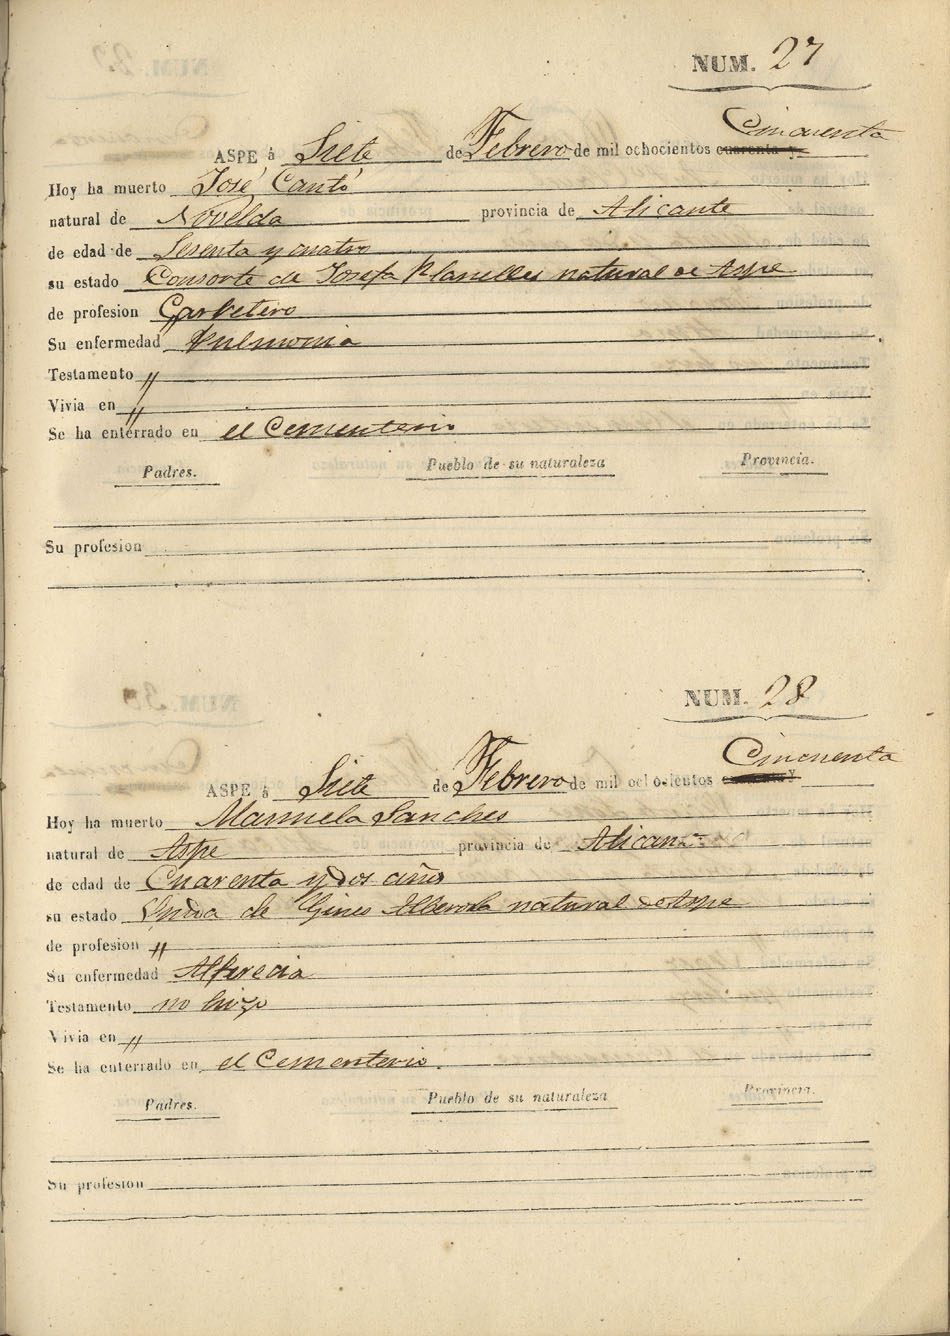 NUM. 27
Cincuenta
ASPE á Siete de Febrero de mil ochocientos cuarenta y
Hoy ha muerto José Cantó
natural de Novelda provincia de Alicante
de edad de Sesenta y cuatro
su estado Consorte de Josefa Planelles natural de Aspe
de profesion Carretero
Su enfermedad Pulmonia
Testamento "
Vivia en "
Se ha enterrado en el Cementerio
Padres. Pueblo de su naturaleza Provincia.
Su profesion
NUM. 28
Cincuenta
ASPE á Siete de Febrero de mil ochocientos cuarenta y
Hoy ha muerto Manuela Sanches
natural de Aspe provincia de Alicante
de edad de Cuarenta y dos años
su estado Viuda de Gines Alberola natural de Aspe
de profesion "
Su enfermedad Alferecia
Testamento no hizo
Vivia en "
Se ha enterrado en el Cementerio.
Padres. Pueblo de su naturaleza Provincia.
Su profesion